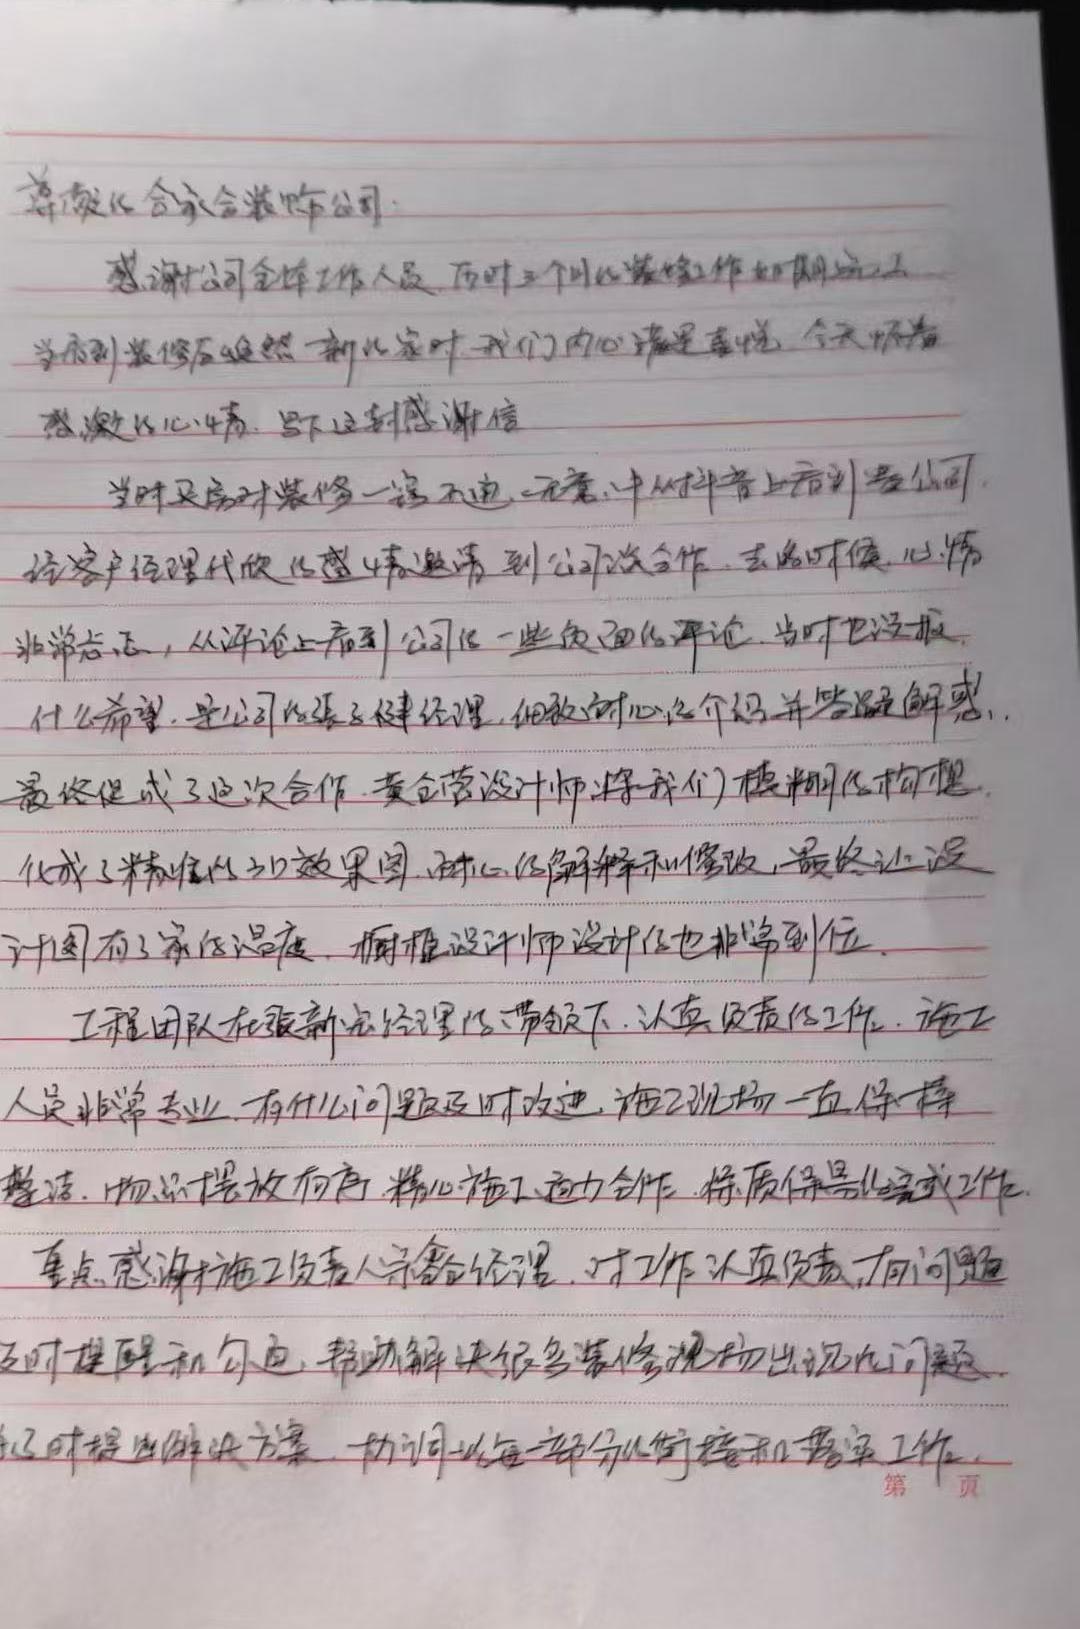 尊敬的合家合装饰公司:
感谢公司全体工作人员 历时三个月的装修工作如期完工
当看到装修后焕然一新的家时 我们内心满是喜悦 今天怀着
感激的心情. 写下这封感谢信
当时买房对装修一窍不通. 无意中从抖音上看到贵公司.
经客户经理代欣的盛情邀请 到公司谈合作. 去的时候 心情
非常忐忑, 从评论上看到公司的一些负面的评论. 当时也没报
什么希望. 是公司的张子健经理. 细致耐心的介绍并答疑解惑.
最终促成了这次合作. 黄全营设计师将我们模糊的构想.
化成了精准的3D效果图. 耐心的解释和修改, 最终让设
计图有了家的温度. 橱柜设计师设计的也非常到位.
工程团队在张新宏经理的带领下. 认真负责的工作. 施工
人员非常专业. 有什么问题及时改进. 施工现场一直保持
整洁. 物品摆放有序 精心施工 通力合作. 将质保量的完成工作.
重点感谢施工负责人宗鑫经理. 对工作认真负责, 有问题
及时提醒和勾通. 帮助解决很多装修现场出现的问题.
时提出解决方案. 协调以每一部分的衔接和落实工作.
第 页